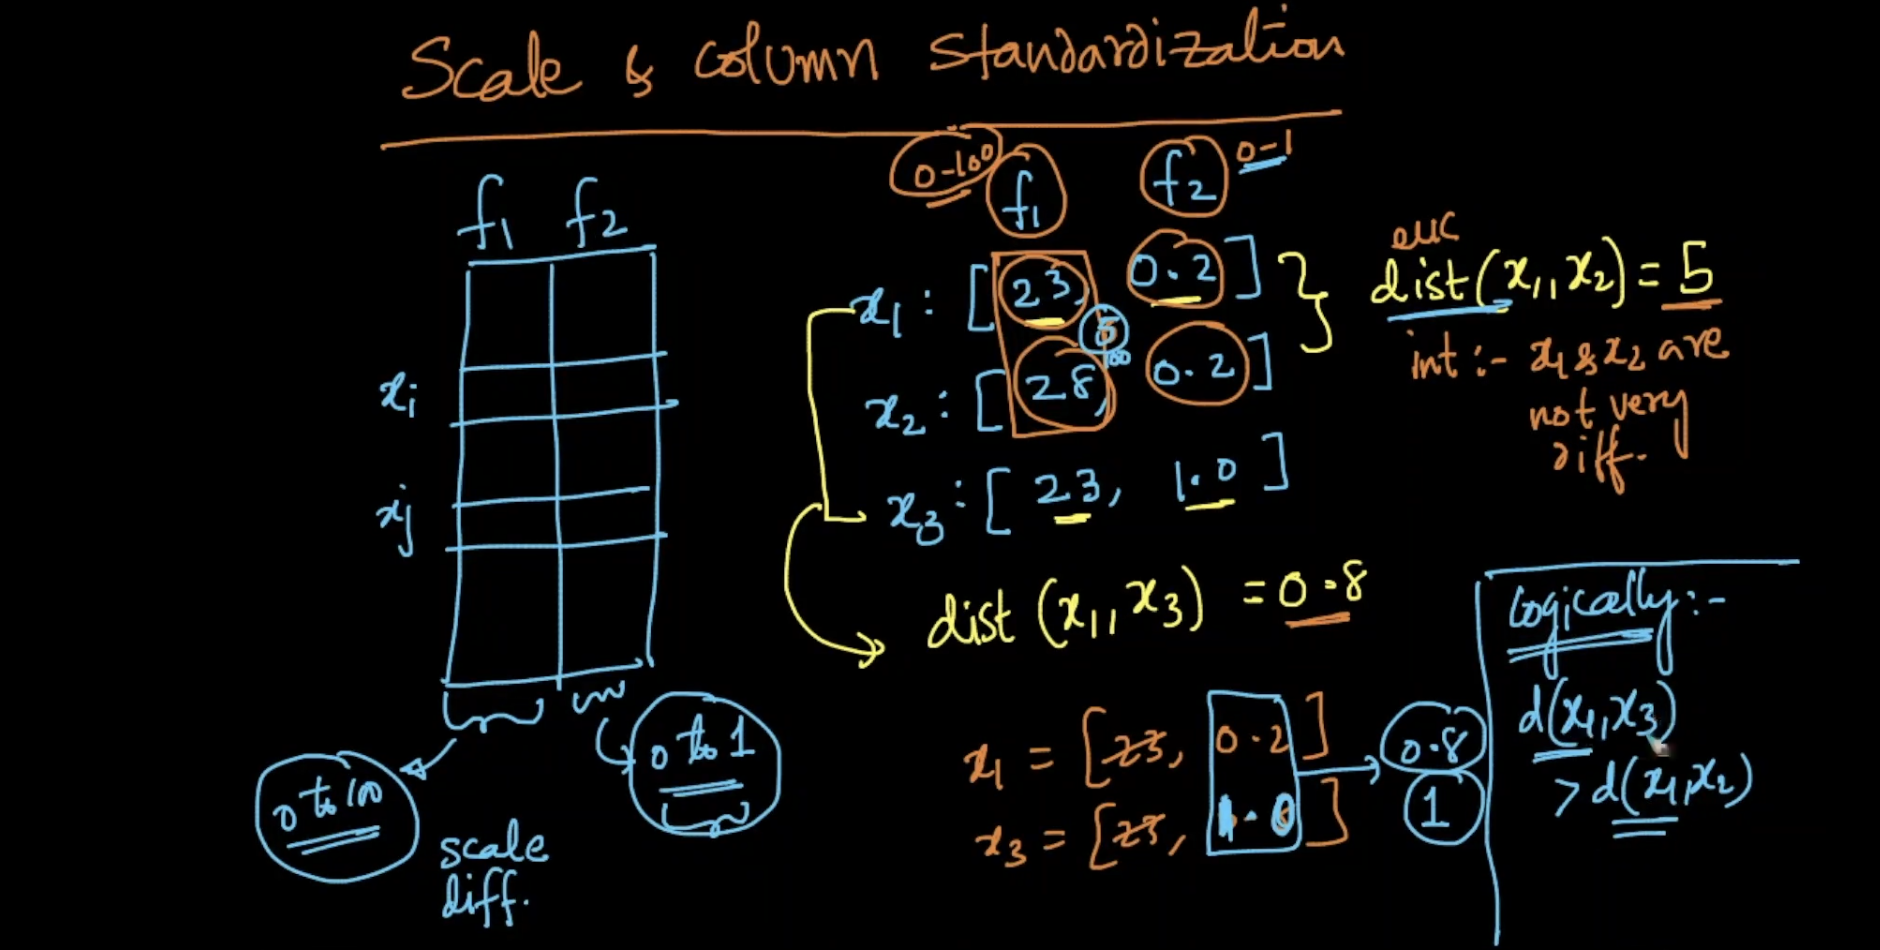 Scale & column Standardization
f1 f2
xi
xj
0 to 100
0 to 1
scale
diff.
0-100 f1 f2 0-1
x1 : [23, 0.2]
5
100
x2 : [28, 0.2]
x3 : [23, 1.0]
euc
dist(x1, x2) = 5
int :- x1 & x2 are
not very
diff.
dist (x1, x3) = 0.8
x1 = [23, 0.2]
x3 = [23, 1.0]
0.8
1
Logically :-
d(x1, x3)
> d(x1, x2)